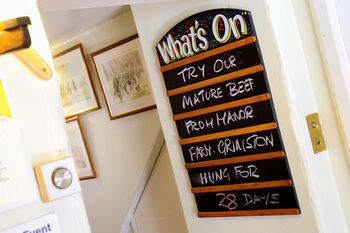 What's On
TRY OUR
MATURE BEEF
FROM MANOR
FARM. GRIMSTON
HUNG FOR
28 DAYS
Event